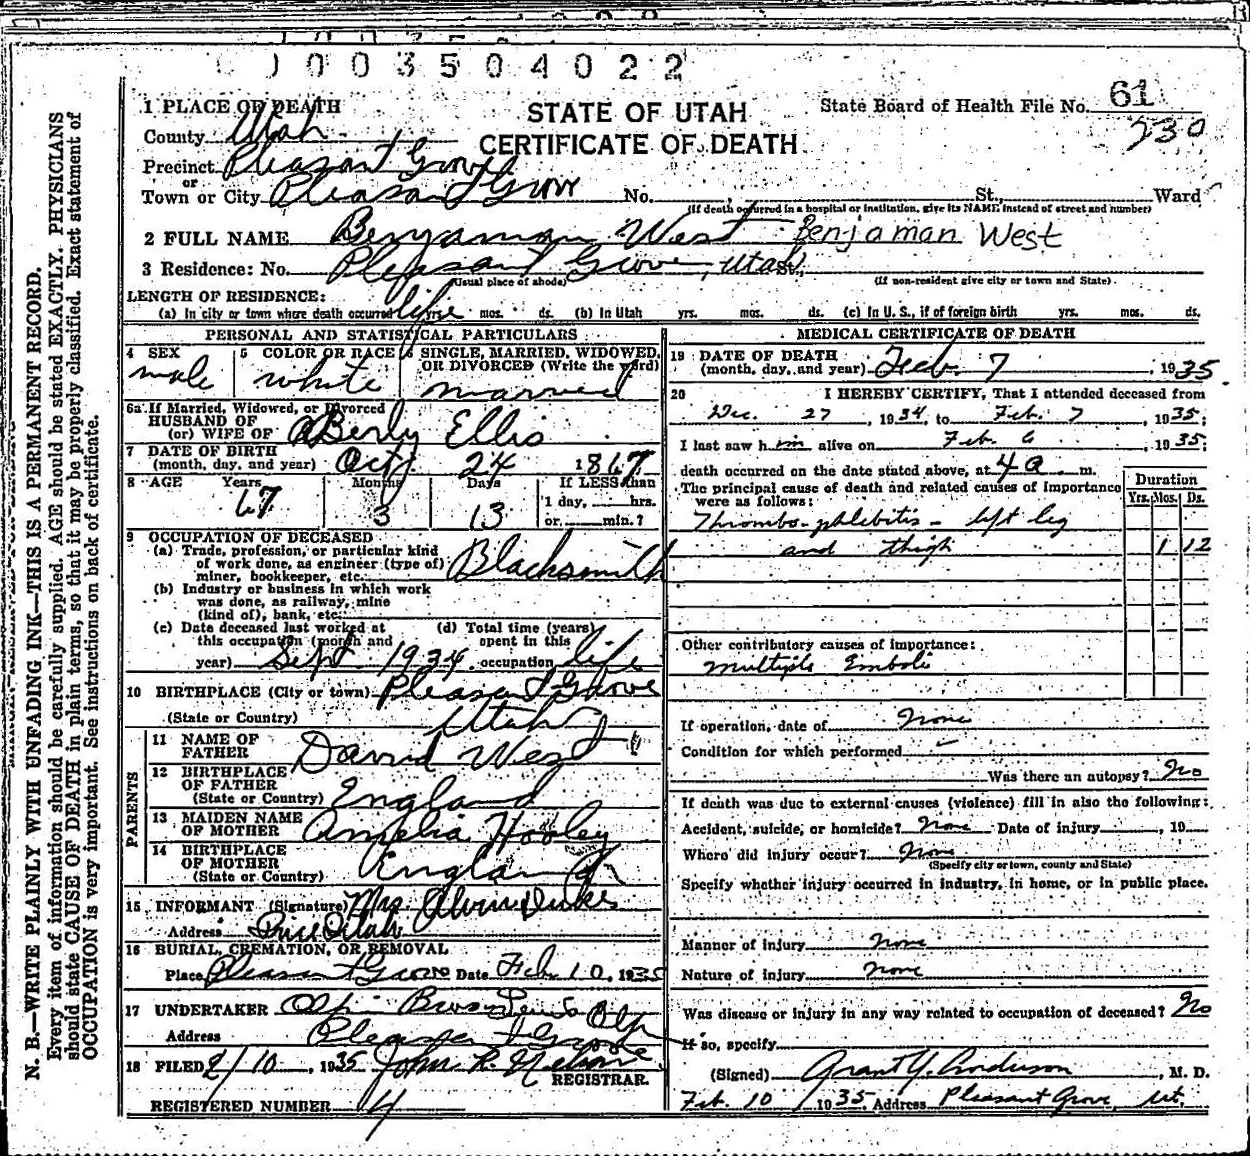 0 0 3 5 0 4 0 2 2
STATE OF UTAH
CERTIFICATE OF DEATH
State Board of Health File No. 61
230
1 PLACE OF DEATH
County Utah
Precinct Pleasant Grove
or
Town or City Pleasant Grove No. St., Ward
(If death occurred in a hospital or institution, give its NAME instead of street and number)
2 FULL NAME Benjaman West Benjaman West
3 Residence: No. Pleasant Grove, Utah,
(Usual place of abode) (If non-resident give city or town and State)
LENGTH OF RESIDENCE:
(a) In city or town where death occurred life yrs. mos. ds. (b) In Utah yrs. mos. ds. (c) In U. S., if of foreign birth yrs. mos. ds.
PERSONAL AND STATISTICAL PARTICULARS
4 SEX male
5 COLOR OR RACE white
6 SINGLE, MARRIED, WIDOWED, OR DIVORCED (Write the word) married
6a If Married, Widowed, or Divorced
HUSBAND OF
(or) WIFE OF Berly Ellis
7 DATE OF BIRTH
(month, day, and year) Oct 24 1867
8 AGE Years 67 Months 3 Days 13 If LESS than
1 day, hrs.
or min.?
9 OCCUPATION OF DECEASED
(a) Trade, profession, or particular kind
of work done, as engineer (type of)
miner, bookkeeper, etc. Blacksmith
(b) Industry or business in which work
was done, as railway, mine
(kind of), bank, etc.
(c) Date deceased last worked at
this occupation (month and
year) Sept 1934
(d) Total time (years)
spent in this
occupation life
10 BIRTHPLACE (City or town) Pleasant Grove
(State or Country) Utah
PARENTS
11 NAME OF
FATHER David West
12 BIRTHPLACE
OF FATHER
(State or Country) England
13 MAIDEN NAME
OF MOTHER Amelia Hooley
14 BIRTHPLACE
OF MOTHER
(State or Country) England
15 INFORMANT (Signature) Mrs Alvin Dukes
Address Price Utah
16 BURIAL, CREMATION, OR REMOVAL
Place Pleasant Grove Date Feb 10, 1935
17 UNDERTAKER Olpin Bros Lewis Olpin
Address Pleasant Grove
18 FILED 2/10, 1935 John R. Nelson
REGISTRAR
REGISTERED NUMBER 4
MEDICAL CERTIFICATE OF DEATH
19 DATE OF DEATH
(month, day, and year) Feb. 7, 1935
20 I HEREBY CERTIFY, That I attended deceased from
Dec. 27, 1934, to Feb. 7, 1935;
I last saw him alive on Feb 6, 1935;
death occurred on the date stated above, at 4 a m.
The principal cause of death and related causes of importance
were as follows:
Duration
Yrs. Mos. Ds.
Thrombo-phlebitis - left leg
and thigh 1 12
Other contributory causes of importance:
Multiple Emboli
If operation, date of None
Condition for which performed
Was there an autopsy? No
If death was due to external causes (violence) fill in also the following:
Accident, suicide, or homicide? None Date of injury, 19
Where did injury occur? None
(Specify city or town, county and State)
Specify whether injury occurred in industry, in home, or in public place.
Manner of injury None
Nature of injury None
Was disease or injury in any way related to occupation of deceased? No
If so, specify
(Signed) Grant Y. Anderson, M. D.
Feb. 10 1935 Address Pleasant Grove, Ut.
N. B.—WRITE PLAINLY WITH UNFADING INK—THIS IS A PERMANENT RECORD.
Every item of information should be carefully supplied. AGE should be stated EXACTLY. PHYSICIANS
should state CAUSE OF DEATH in plain terms, so that it may be properly classified. Exact statement of
OCCUPATION is very important. See instructions on back of certificate.